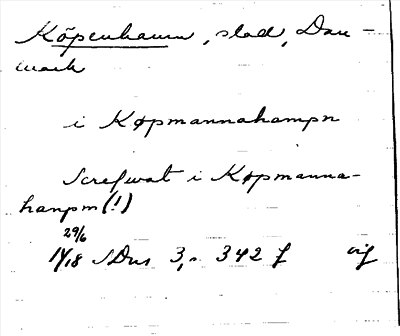 Köpenhamn, stad, Dan-
mark
i Køpmannahampn
Screfwat i Køpmanna-
hanpm (!)
29/6
1418 SDns 3, s. 342 f